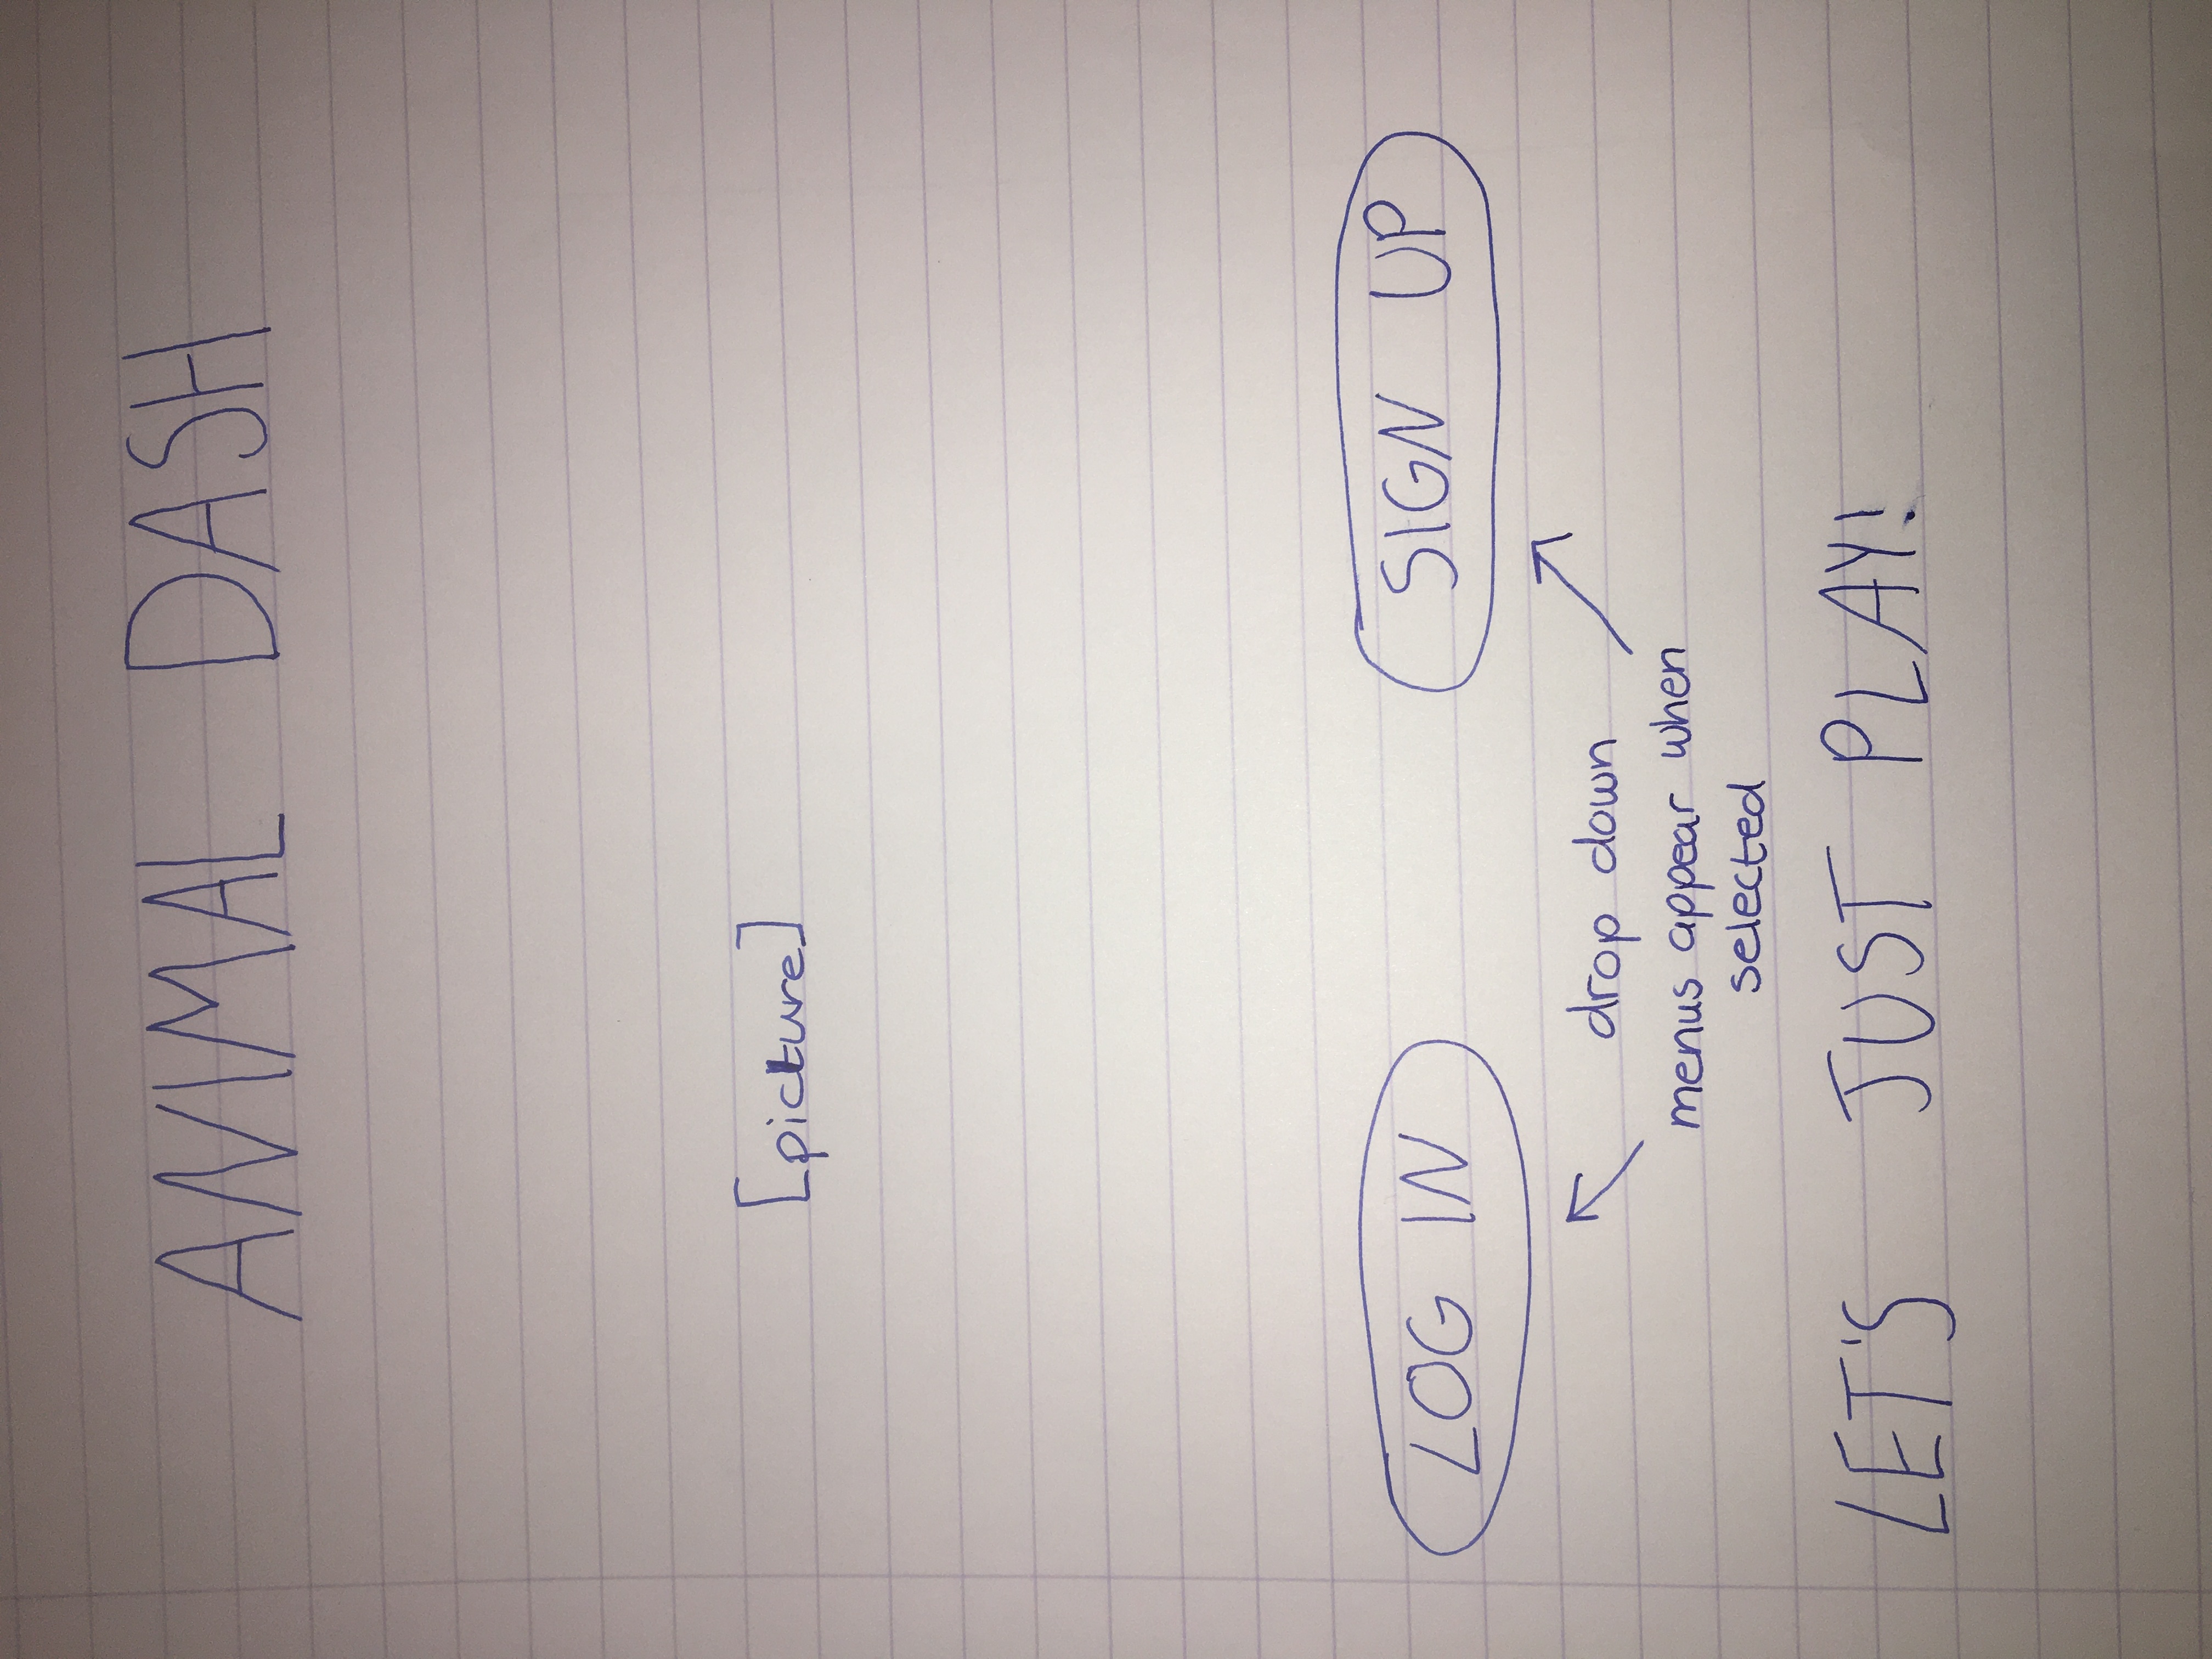 ANIMAL DASH
[picture]
LOG IN
SIGN UP
drop down
menus appear when
selected
LET'S JUST PLAY!